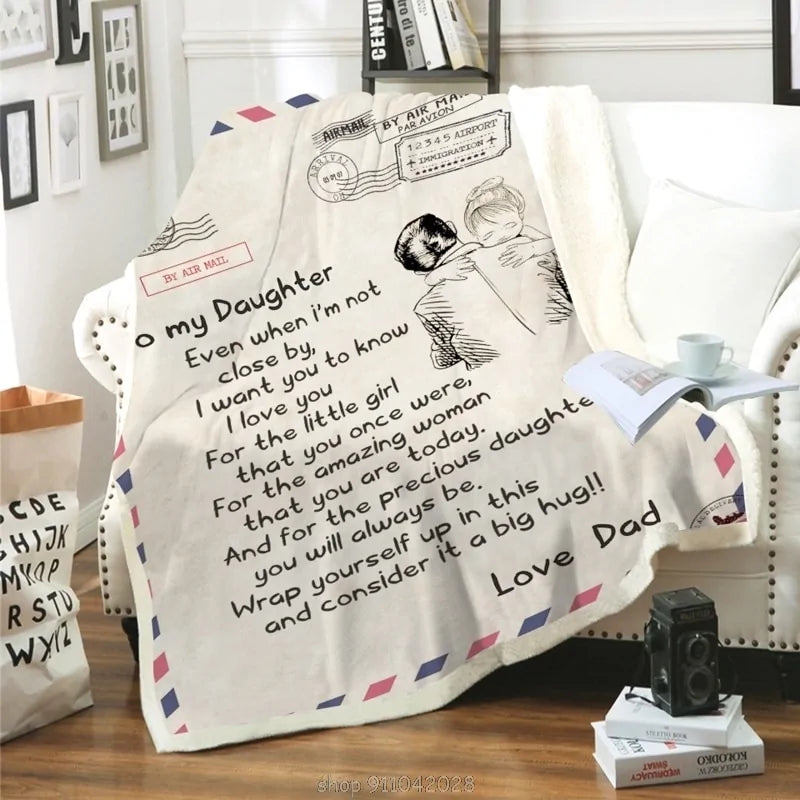 CENTU
tro di te
E
AIRMAIL
BY AIR MA
PAR AVION
12345 AIRPORT
IMMIGRATION
ARRIVAL
BY AIR MAIL
o my Daughter
Even when i'm not
close by,
I want you to know
I love you
For the little girl
that you once were,
For the amazing woman
that you are today.
And for the precious daughte
you will always be.
Wrap yourself up in this
and consider it a big hug!!
Love Dad
CDE
GHIJK
MNOP
RSTU
WXYZ
BOOK
WĘDRUJĄCY
ŚWIAT
GRZEGORZ
KOŁODKO
shop 911042028